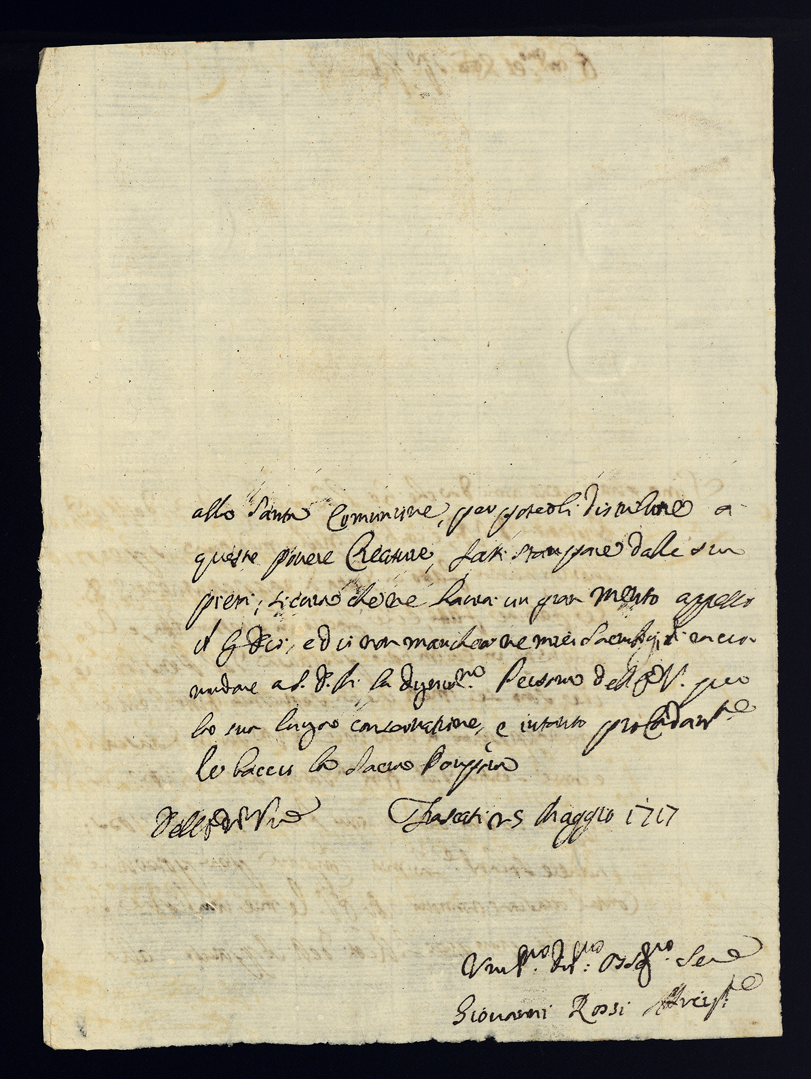 alla Santa Comunione, per poterli distribuire a
queste povere Creature, fatti stampare dalla sua
pietà, sicuro che ne haverà un gran merito appresso
il Sig. Dio, ed io non mancherò ne miei Sacrifizij di racco-
mandare a S. D. M. la degniss.mo Persona dell'E. V. per
la sua lunga conservazione, e intanto prostrandom.e
le baccio la Sacra Porpora
Dell'E. V.ra Frascati 25 Maggio 1717
Vmil.mo Dev.mo Oss.mo Ser.e
Giovanni Rossi Arcip.e